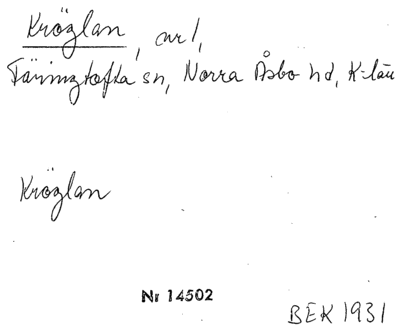 Kröglan, avl,
Färingtofta sn, Norra Åsbo hd, K-län
Kröglan
Nr 14502
BEK 1931